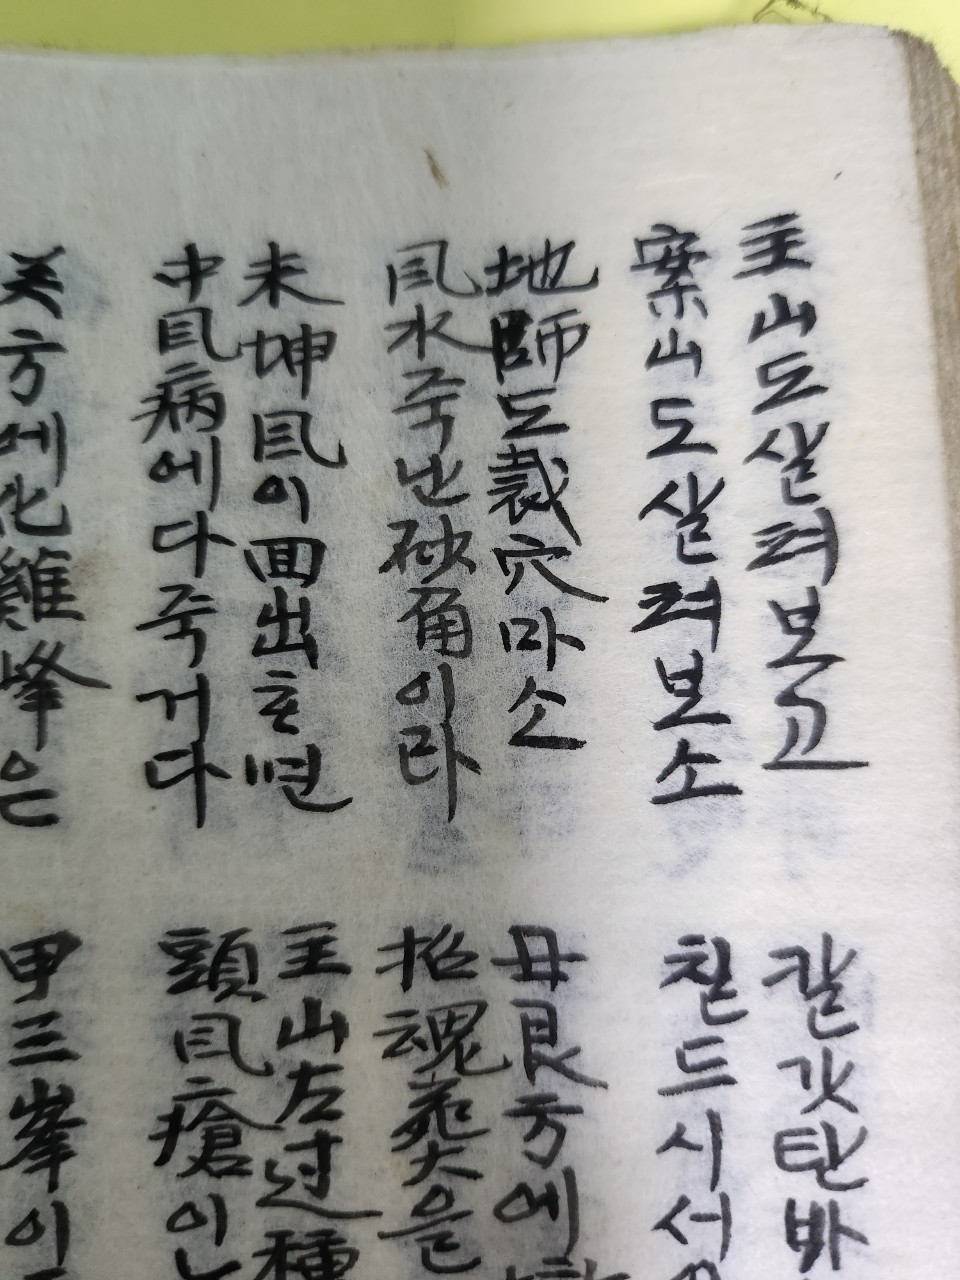 主山도살펴보고
案山도살펴보소
地師도裁穴마소
風水죽난砂角이라
未坤風이回出호면
中風病에다죽거다
方에化雞峰은
칼갓탄바
칠드시서
丑艮方에
招魂葬은
主山左过種
頭風瘡이
甲三峯이